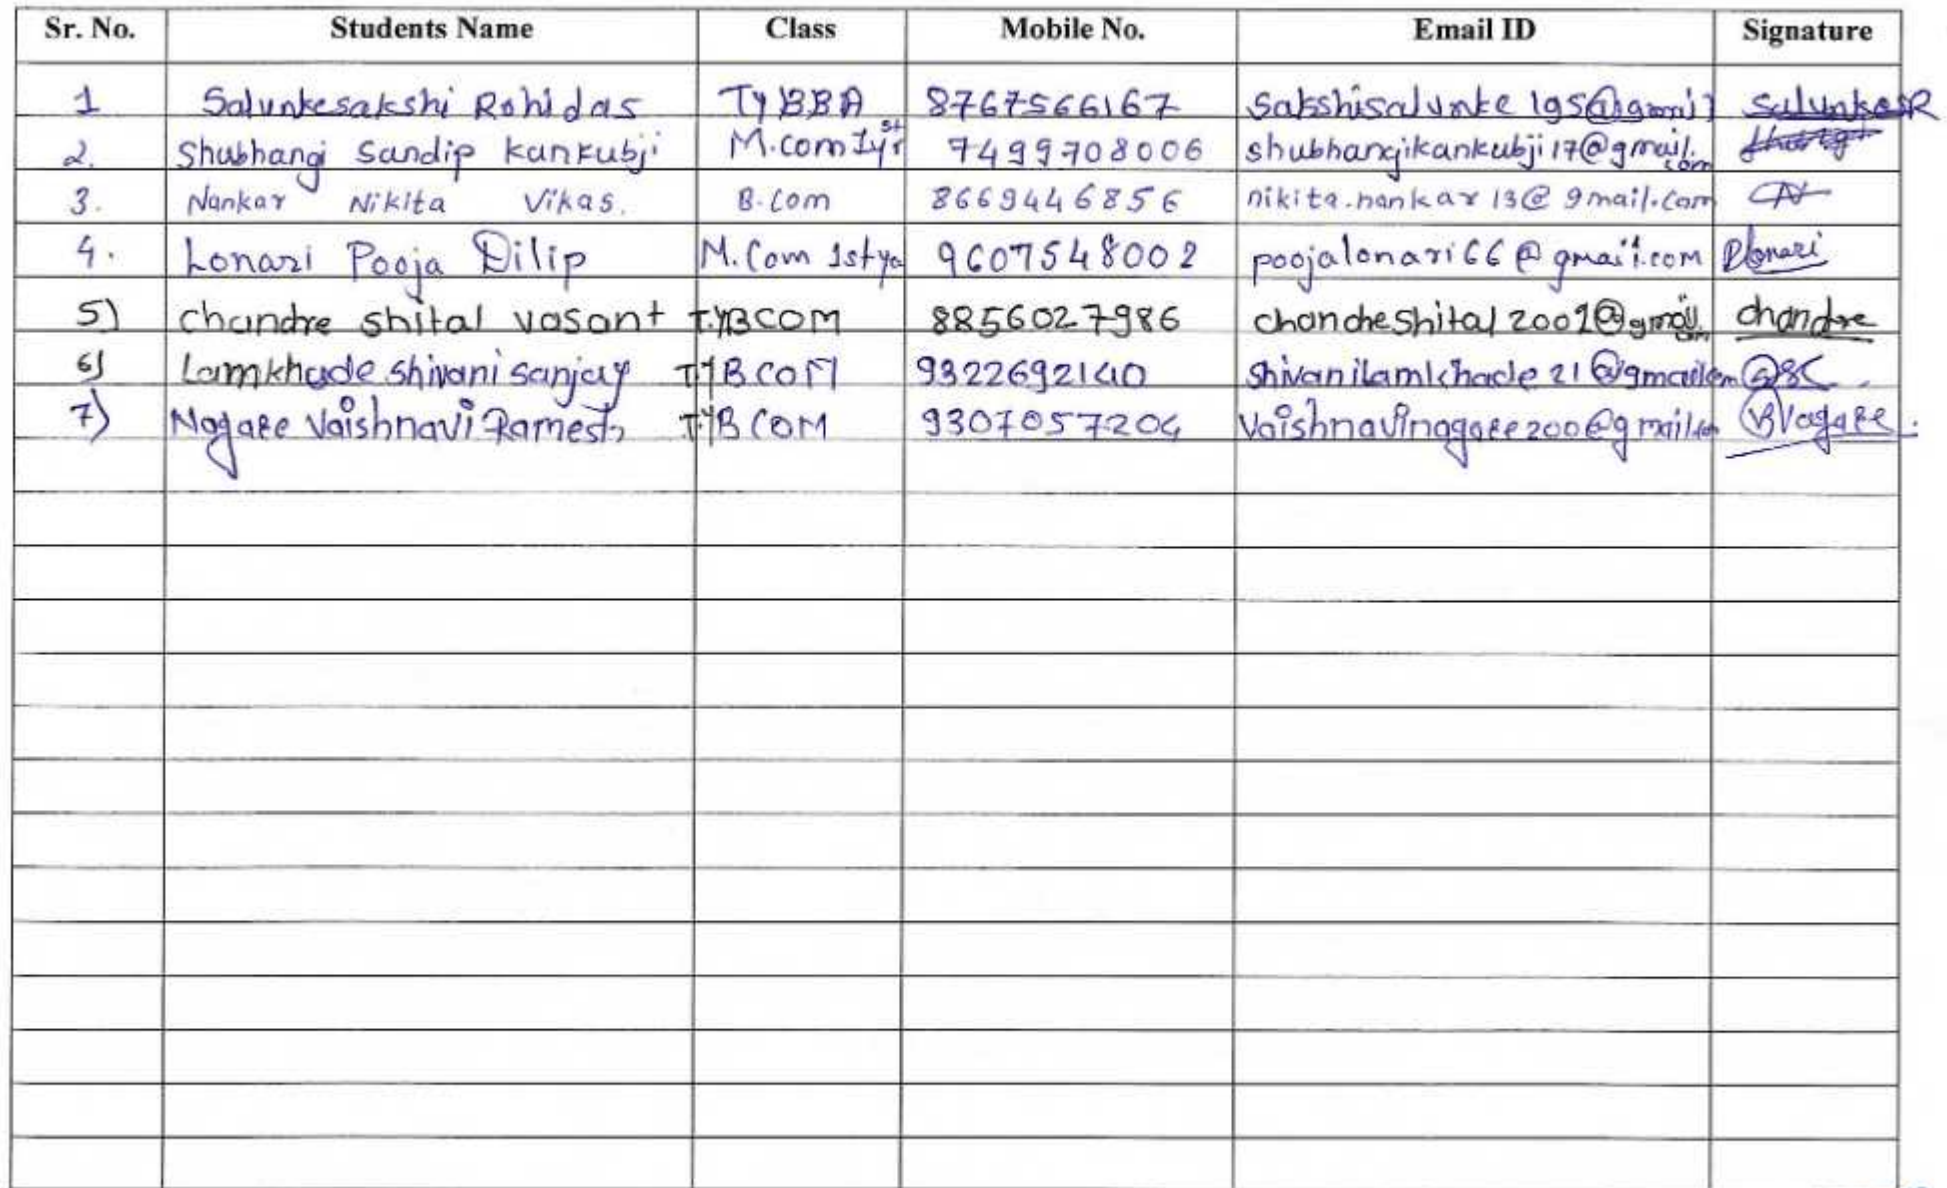 Sr. No. Students Name Class Mobile No. Email ID Signature
1 Salunkesakshi Rohidas TYBBA 8767566167 Sakshisalunke195@gmail SalunkeSR
2. Shubhangi Sandip Kankubji M.com Ist yr 7499708006 shubhangikankubji17@gmail.com
3. Nankar Nikita Vikas. B.com 8669446856 nikita.nankar13@gmail.com
4. Lonari Pooja Dilip M.Com 1st ya 9607548002 poojalonari66@gmail.com Plonari
5) chandre shital vasant T.YBCOM 8856027986 chandreshital2001@gmail.com chandre
6) Lamkhade shivani sanjay T.YBCOM 9322692140 shivanilamkhade21@gmailcom
7) Nagare Vaishnavi Ramesh T.YBCOM 9307057204 vaishnavinagare200@gmail.com VNagare.